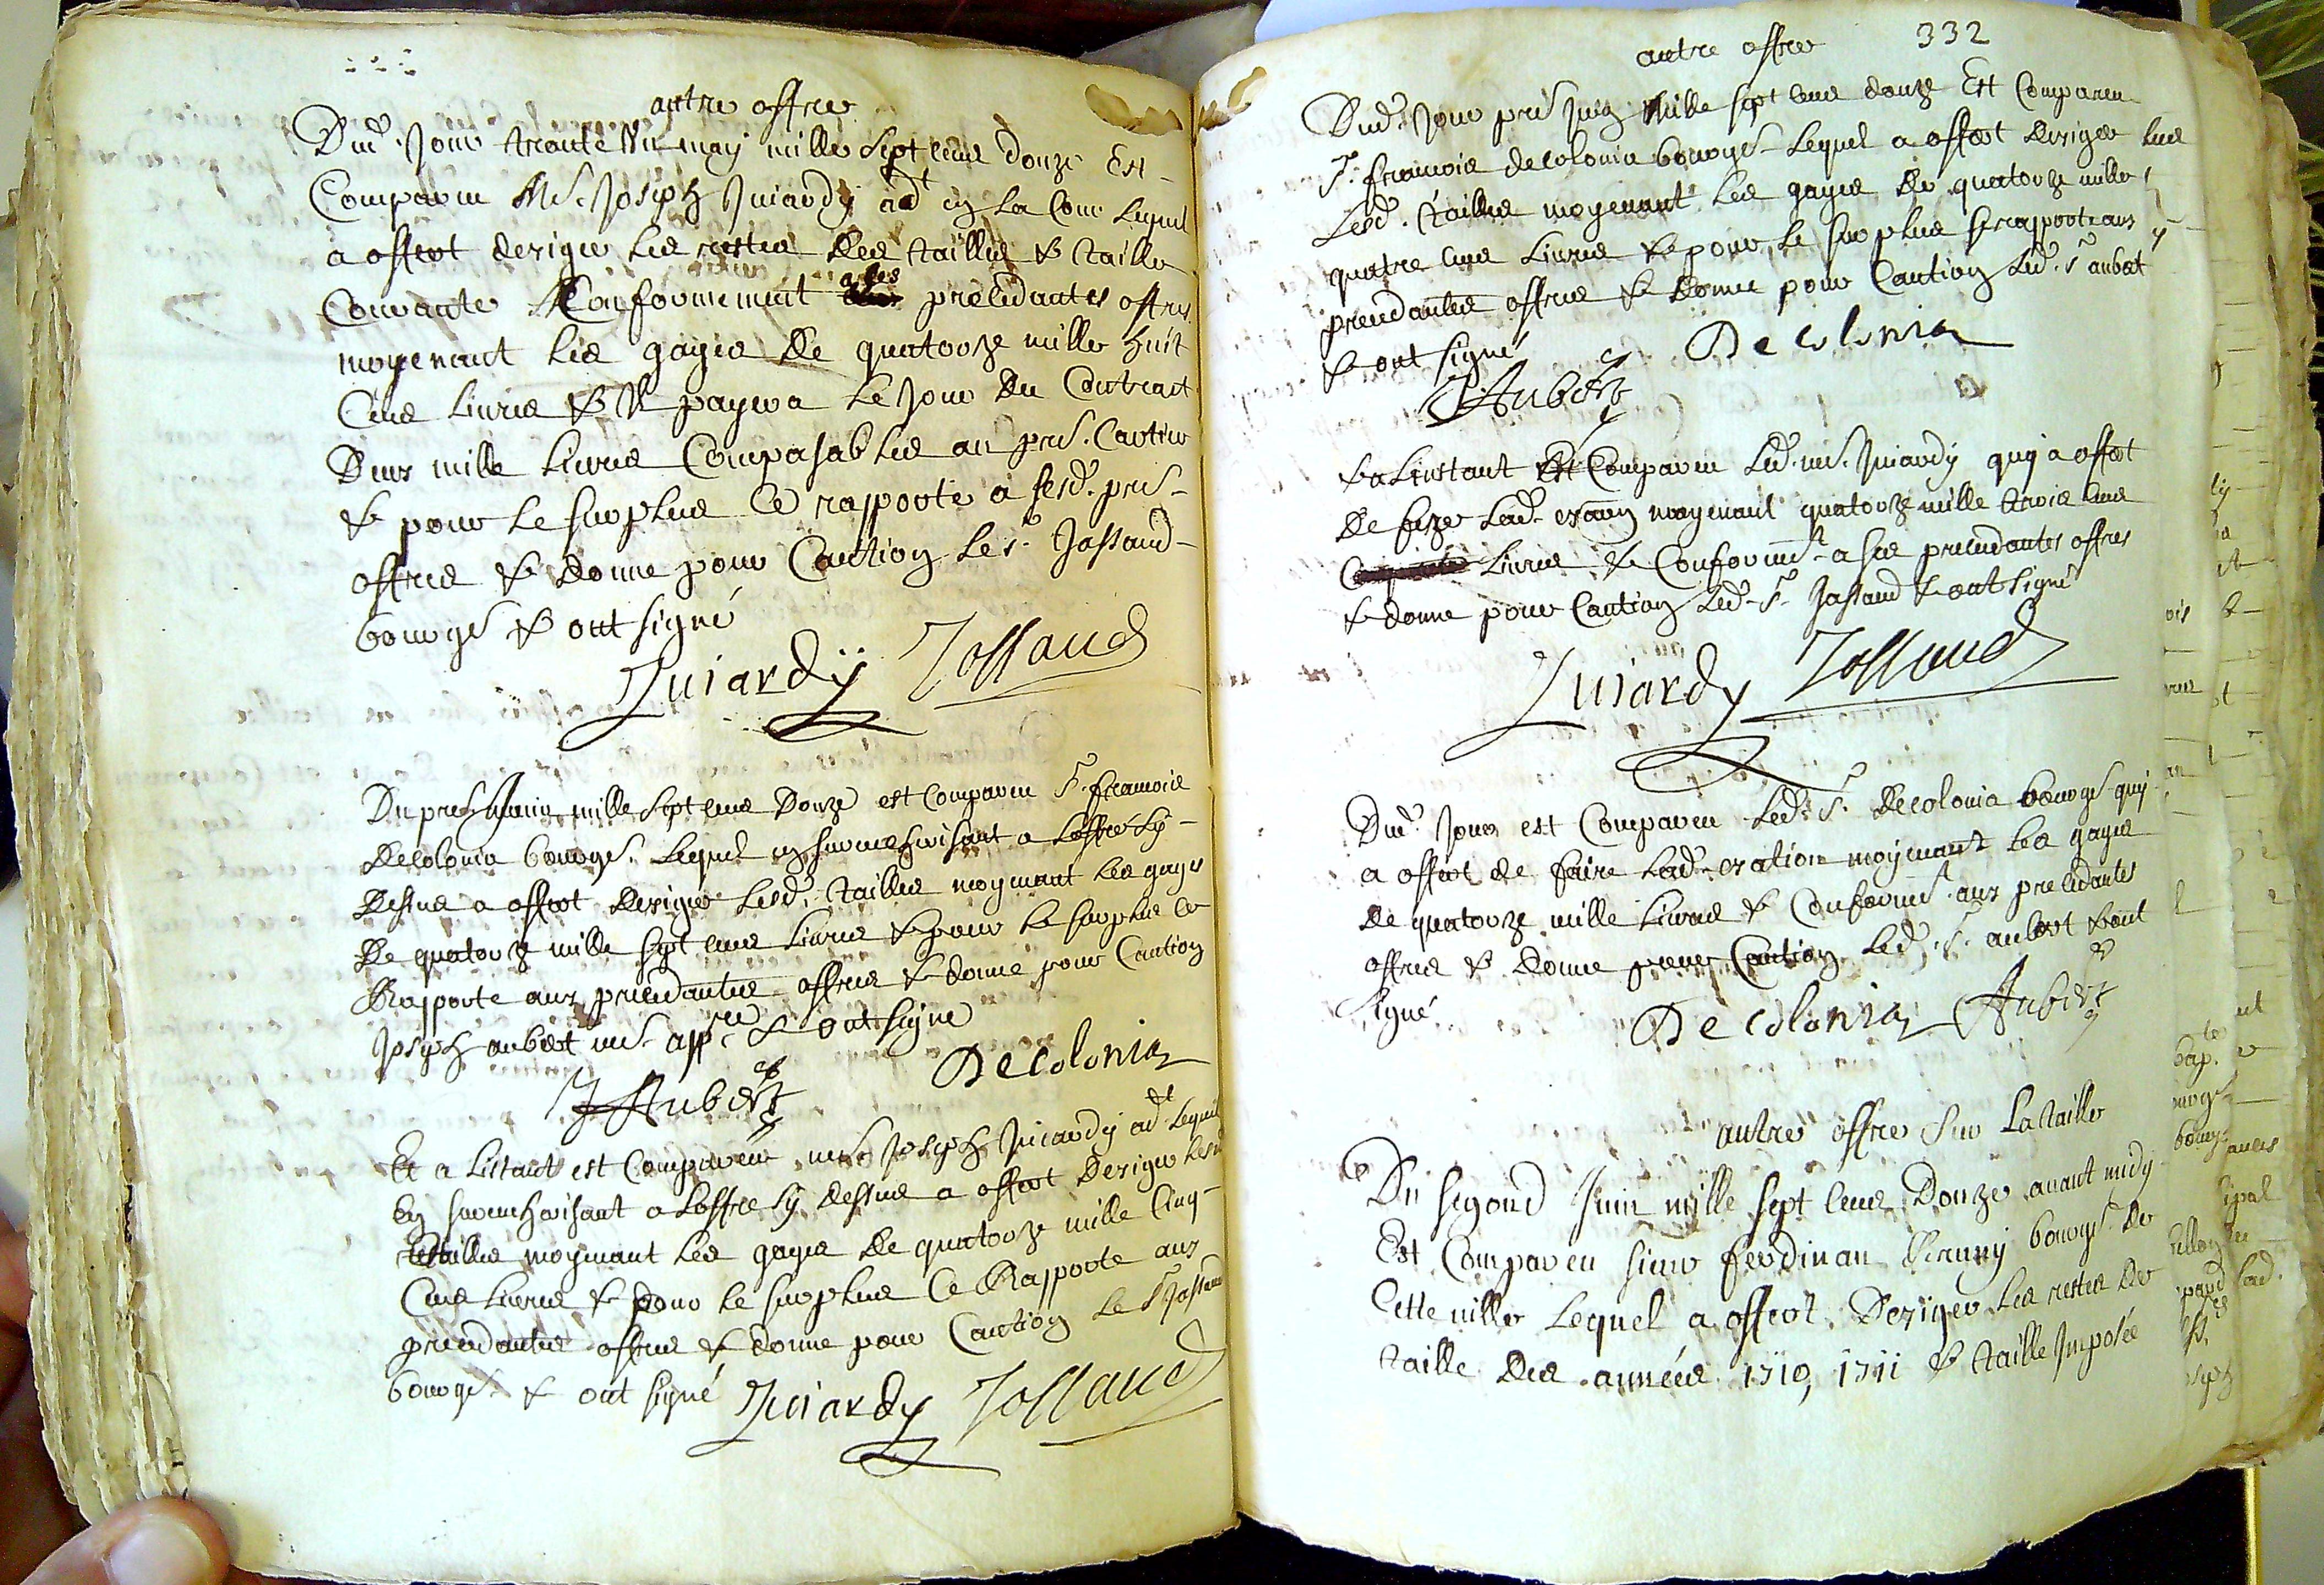 autre offre
Dud. Jour trante Un may mille Sept Cens Douze Est
Comparu Me. Joseph Juiardy adt en la Cour Lequel
a offert dexiger Les restes Des tailles & taille
Courante & Conformement a ses précédantes offres
moyenant Les gages De quatorze mille huit
Cens Livres & Il payera Le Jour Du Contract
Deux mille Livres Compasables au prer. Cartier
& pour Le surplus Ce rapporte a sesd. prec.
offres & Donne pour Caution Le sr. Jossaud
bourgs. & ont signé
Juiardy Jossaud
Du prer. Juin mille Sept Cens Douze est Comparu Sr. francois
Decolonia bourgs. Lequel en surencherisant a Loffre Cy
Dessus a offert Dexiger Lesd. tailles moyenant Les gages
De quatorze mille sept cens Livres & pour Le surplus Ce
Rapporte aux precedantes offres & donne pour Caution
Joseph aubert me. appre. & ont signe
J Aubert Decolonia
Et a Listant est Comparu me. Joseph Juiardy adt Lequel
En surencherisant a Loffre Cy Dessus a offert Dexiger Lesd.
tailles moyenant Les gages De quatorze mille Cinq
Cens Livres & pour Le surplus Ce Rapporte aux
precedantes offres & donne pour Caution Le Sr Jossaud
bourgs. & ont signé Juiardy Jossaud
autre offre 332
Dud. Jour prer. Juin Mille sept Cens douze Est Comparu
Sr. francois decolonia bourgs. Lequel a offert Dexiger
Lesd. tailles moyenant Les gages De quatorze mille
quatre Cens Livres & pour Le surplus se rapporte aux
precedantes offres & Donne pour Caution Led. Sr aubert
& ont signé Decolonia
J Aubert
& a Linstant Est Comparu Led. me. Juiardy quy a offert
De fere Lad. exaon moyenant quatorze mille trois Cens
Livres & Conformt. a ses precedantes offres
& donne pour Caution Led. Sr. Jossaud & ont signé
Juiardy Jossaud
Dud. Jour est Comparu Led. Sr. Decolonia bourgs. quy
a offert de faire Lad. exation moyenant Les gages
De quatorze mille Livres & Conformt. aux precedantes
offres & Donne pour Caution Led. Sr. aubert & ont
signé Decolonia J Aubert
autre offre sur La taille
Du segond Juin mille sept Cens Douze avant midy
Est Comparu sieur ferdinan bourgs. De
Cette ville Lequel a offert Dexiger Les restes De
taille Des années 1710, 1711 & taille Imposée